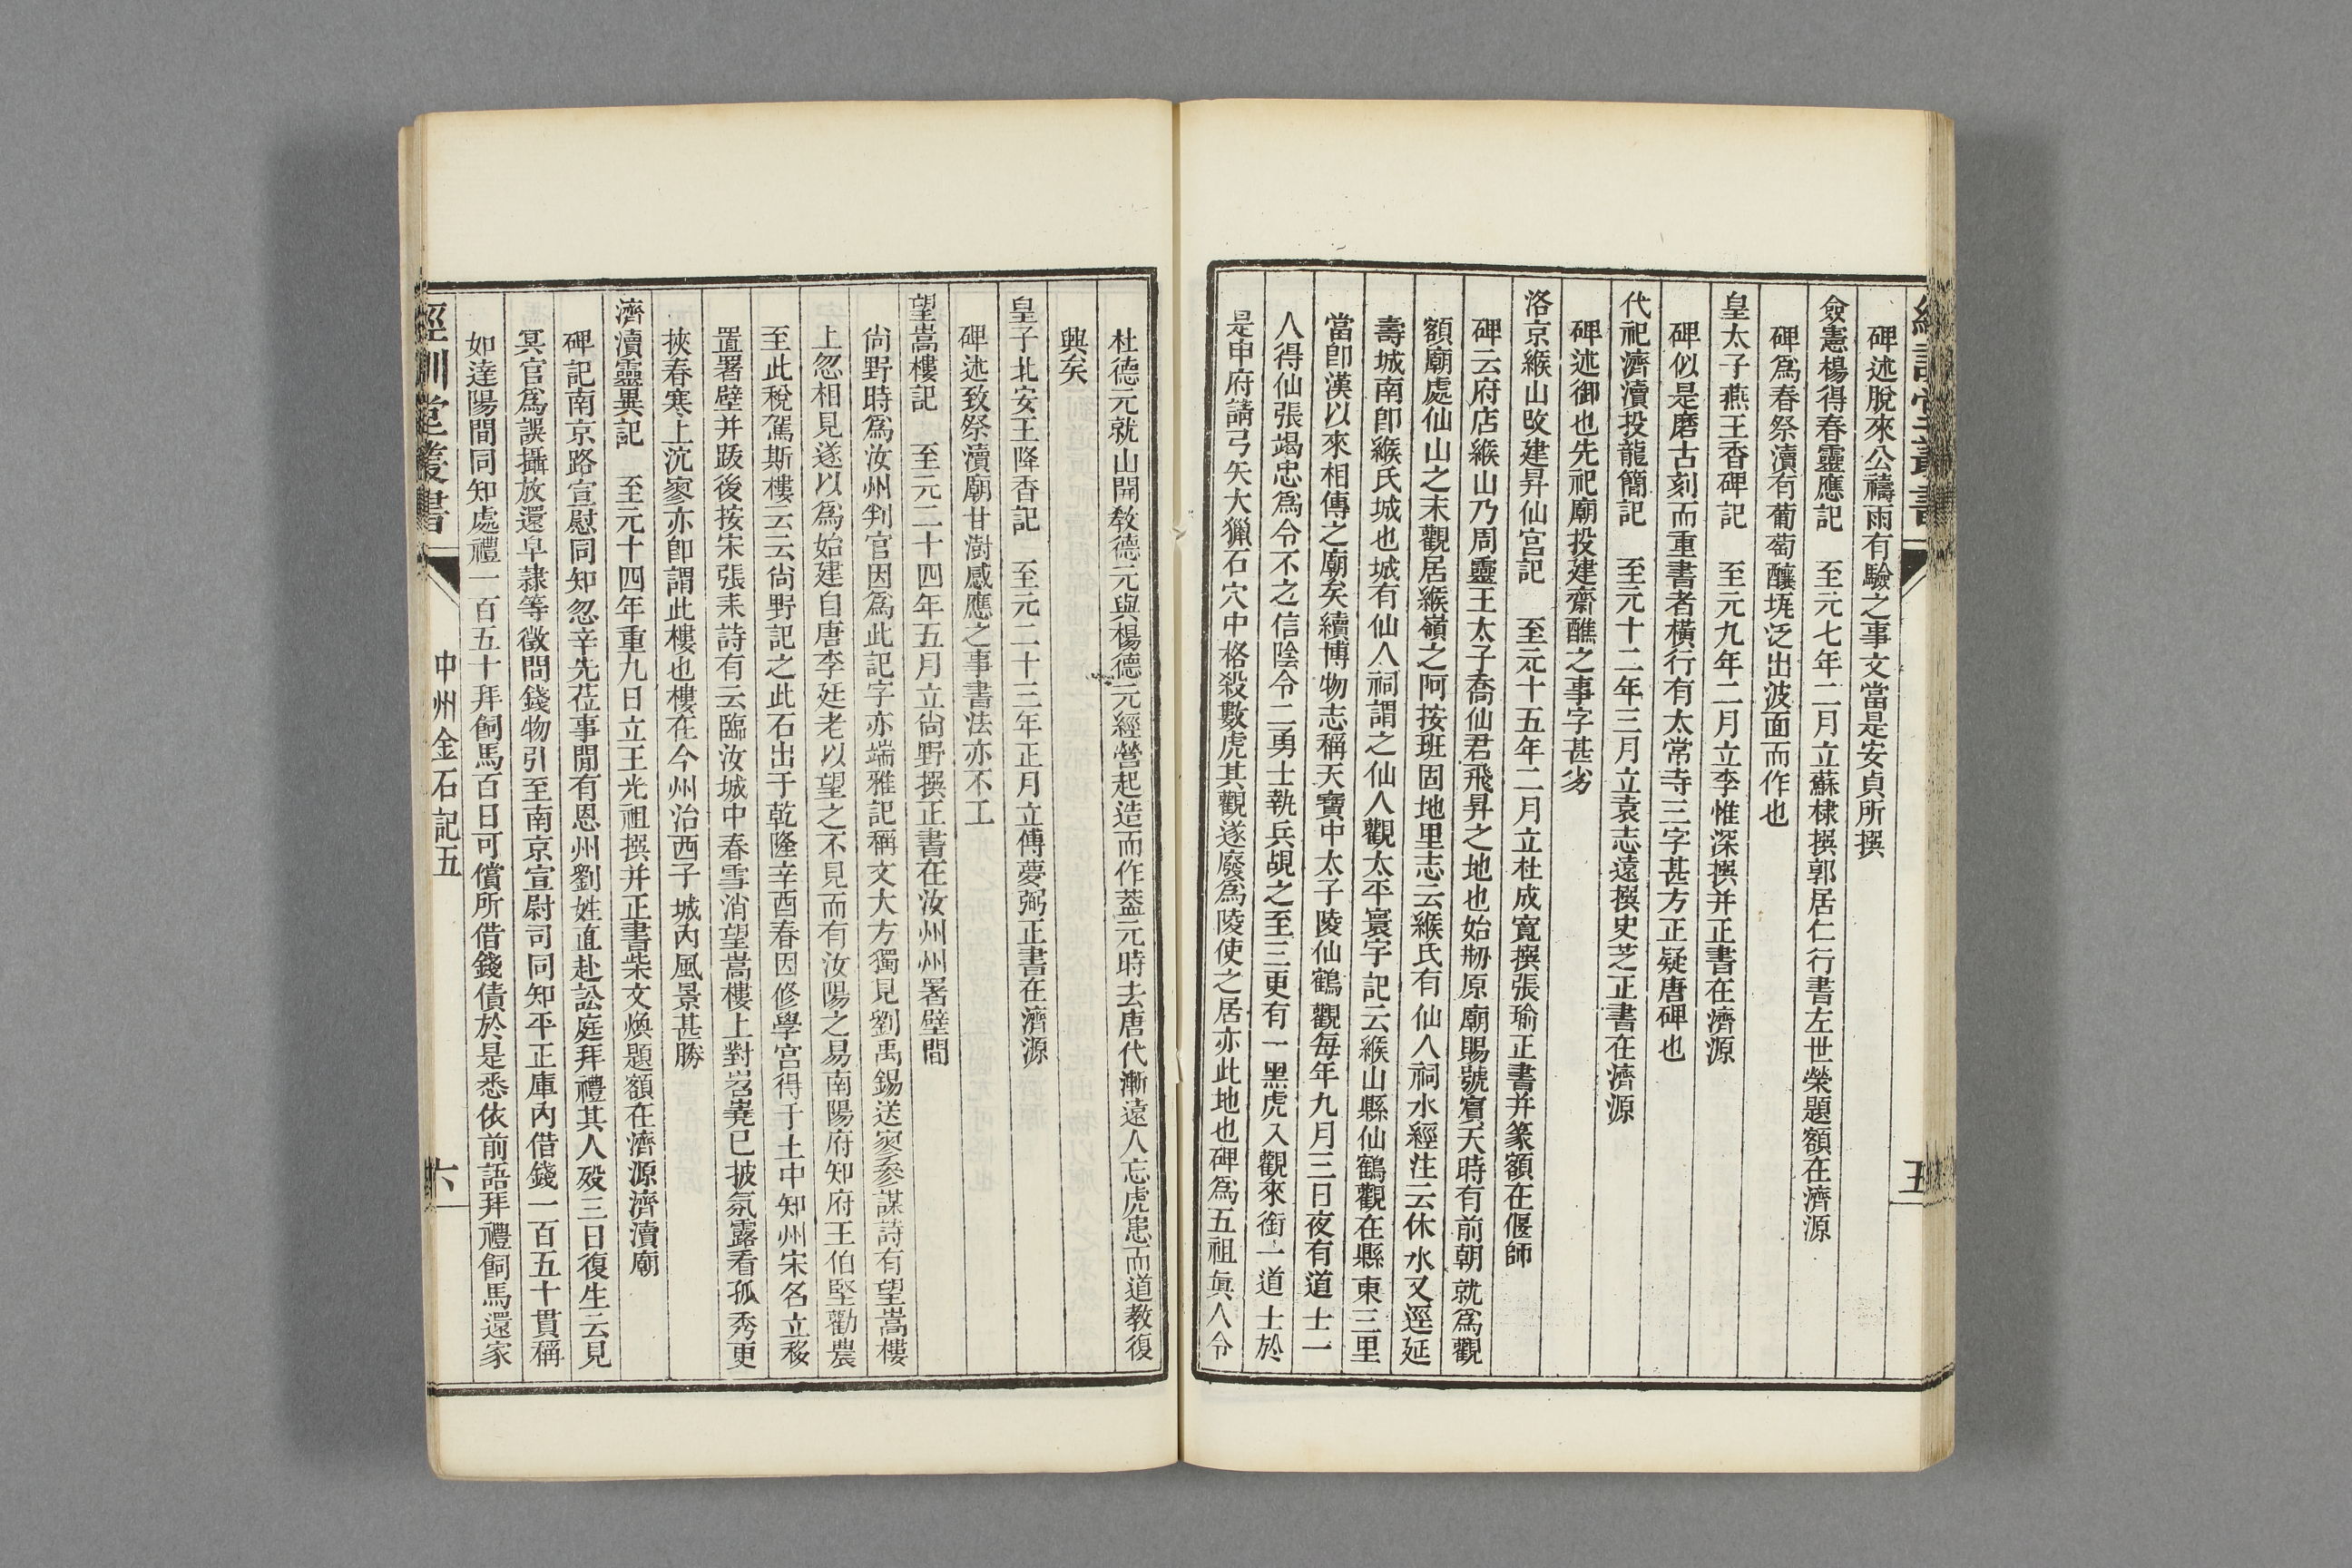 碑述脫來公禱雨有驗之事文當是安貞所撰
僉憲楊得春靈應記　至元七年二月立蘇棣撰郭居仁行書左世榮題額在濟源
碑爲春祭瀆有葡萄釀㼽泛出波面而作也
皇太子燕王香碑記　至元九年二月立李惟深撰并正書在濟源
碑似是磨古刻而重書者橫行有太常寺三字甚方正疑唐碑也
代祀濟瀆投龍簡記　至元十二年三月立袁志遠撰史芝正書在濟源
碑述御也先祀廟投建齋醮之事字甚劣
洛京緱山改建昇仙宮記　至元十五年二月立杜成寬撰張瑜正書并篆額在偃師
碑云府店緱山乃周靈王太子喬仙君飛昇之地也始刱原廟賜號賓天時有前朝就爲觀
額廟處仙山之末觀居緱嶺之阿按班固地里志云緱氏有仙人祠水經注云休水又逕延
壽城南卽緱氏城也城有仙人祠謂之仙人觀太平寰宇記云緱山縣仙鶴觀在縣東三里
當卽漢以來相傳之廟矣續博物志稱天寶中太子陵仙鶴觀每年九月三日夜有道士一
人得仙張竭忠爲令不之信陰令二勇士執兵覘之至三更有一黑虎入觀來銜一道士於
是申府請弓矢大獵石穴中格殺數虎其觀遂廢爲陵使之居亦此地也碑爲五祖眞人令
杜德元就山開敎德元與楊德元經營起造而作葢元時去唐代漸遠人忘虎患而道教復
興矣
皇子北安王降香記　至元二十三年正月立傅夢弼正書在濟源
碑述致祭瀆廟甘澍感應之事書法亦不工
望嵩樓記　至元二十四年五月立尙野撰正書在汝州州署壁間
尙野時爲汝州判官因爲此記字亦端雅記稱文大方獨見劉禹錫送寥參謀詩有望嵩樓
上忽相見遂以爲始建自唐李延老以望之不見而有汝陽之易南陽府知府王伯堅勸農
至此稅駕斯樓云云尙野記之此石出于乾隆辛酉春因修學宮得于土中知州宋名立移
置署壁并跋後按宋張耒詩有云臨汝城中春雪消望嵩樓上對岧嶤已披氛露看孤秀更
挾春寒上泬寥亦卽謂此樓也樓在今州治西子城內風景甚勝
濟瀆靈異記　至元十四年重九日立王光祖撰并正書柴文煥題額在濟源濟瀆廟
碑記南京路宣慰同知忽辛先莅事閒有恩州劉姓直赴訟庭拜禮其人殁三日復生云見
冥官爲誤攝放還皁隸等徵問錢物引至南京宣尉司同知平正庫內借錢一百五十貫稱
如達陽間同知處禮一百五十拜飼馬百日可償所借錢債於是悉依前語拜禮飼馬還家
經訓堂叢書　中州金石記五　六
經訓堂叢書　五